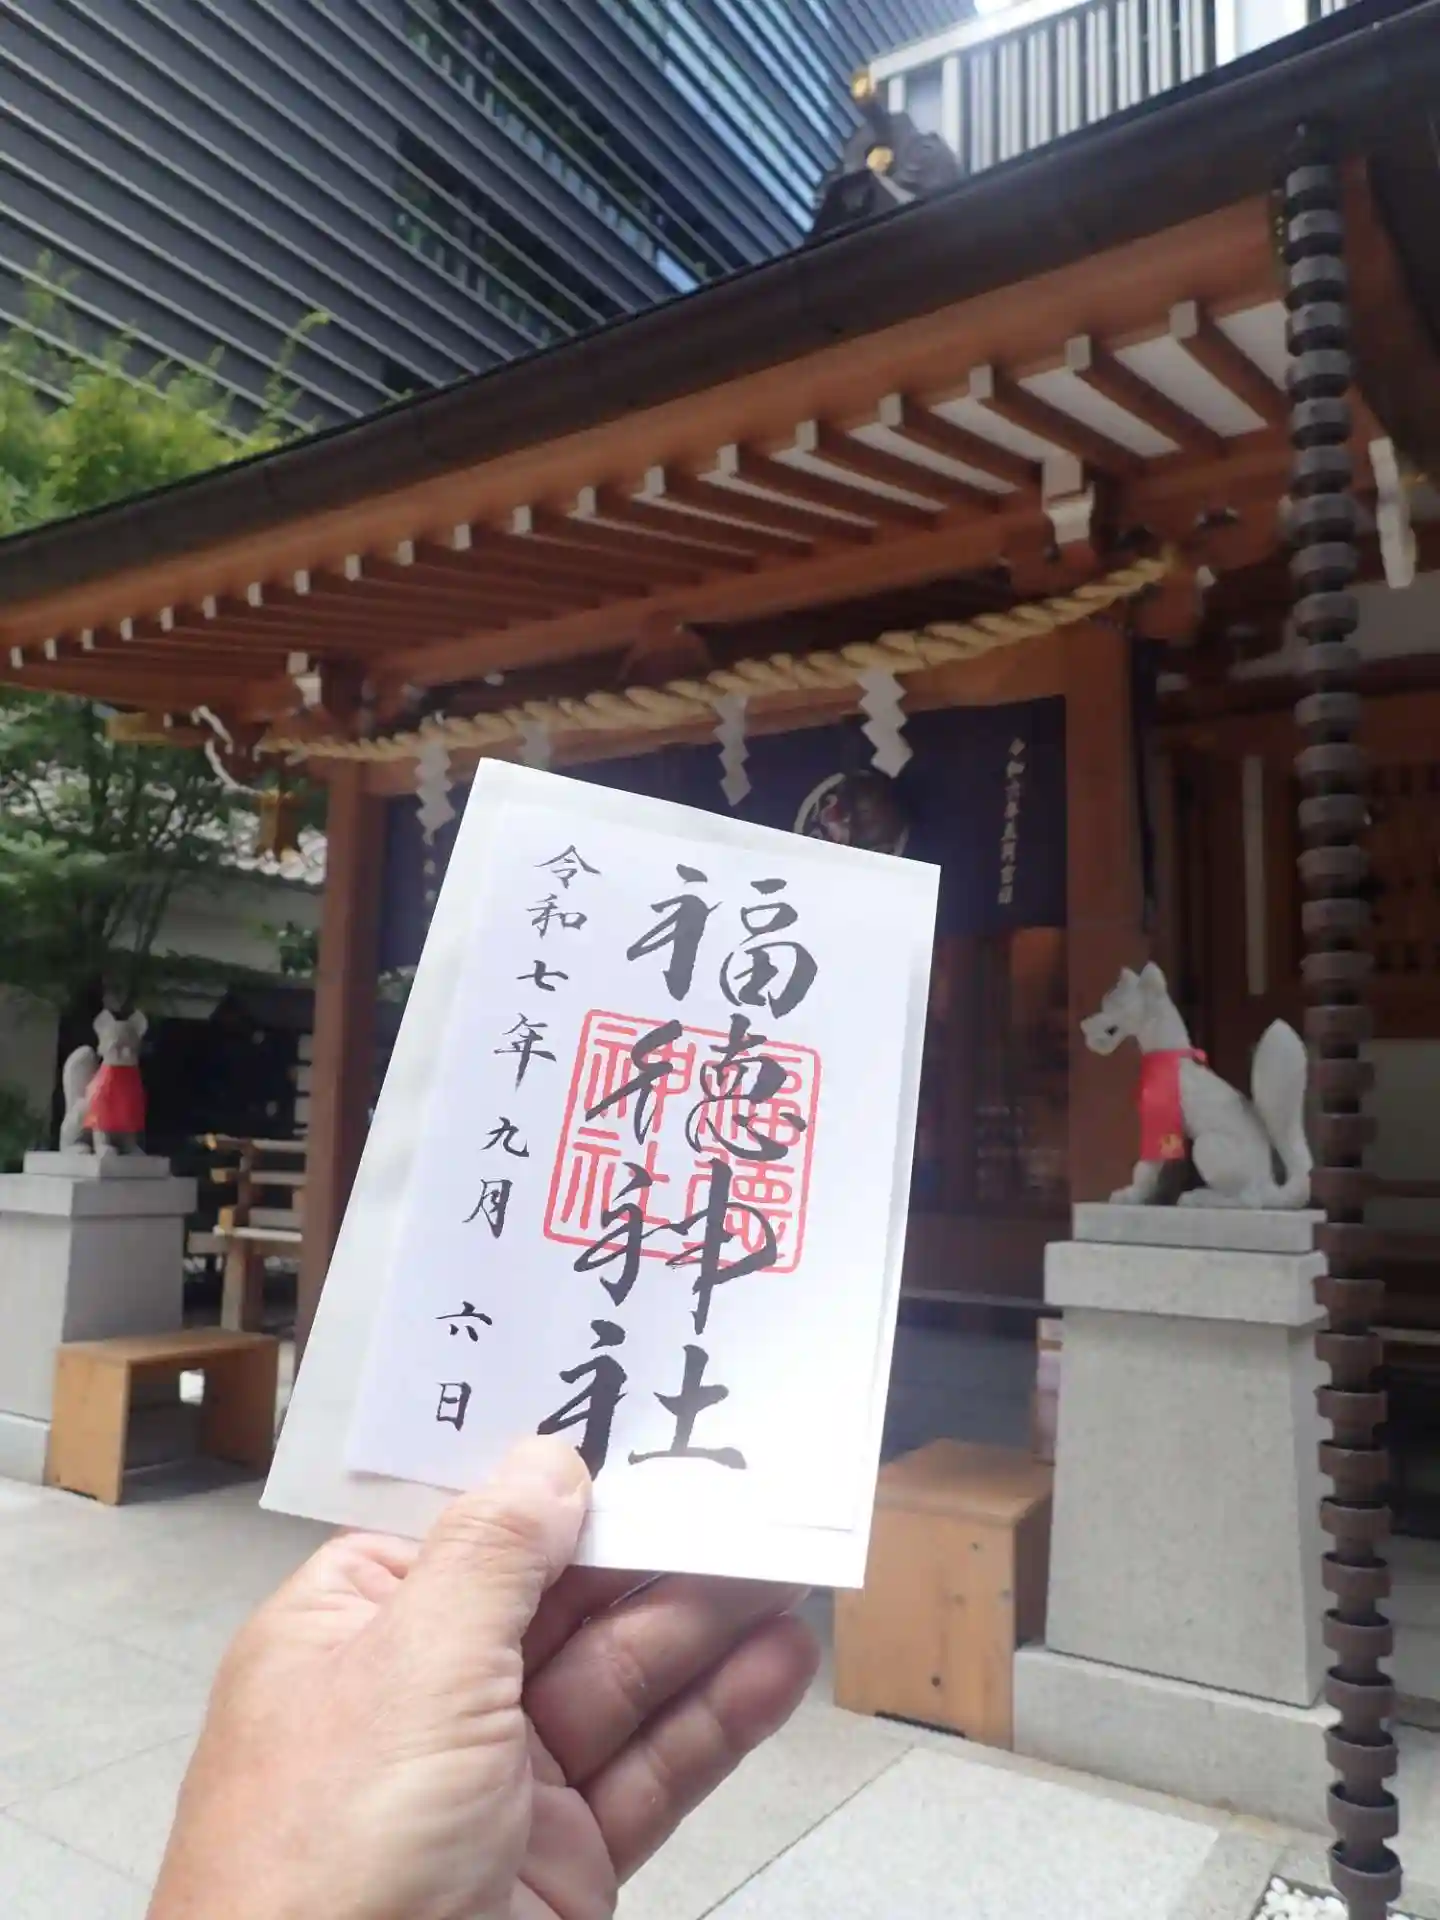 福徳神社
福徳
神社
令和七年九月六日